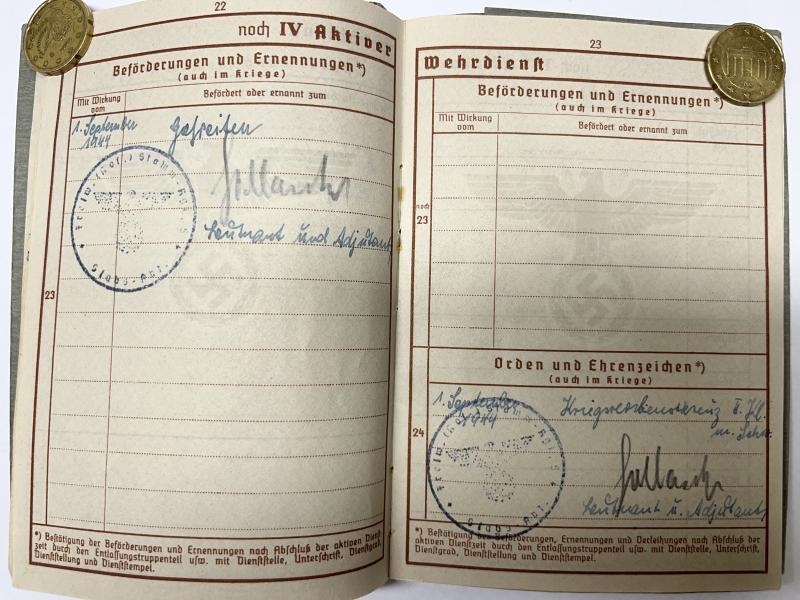 22
noch IV Aktiver
Beförderungen und Ernennungen*)
(auch im Kriege)
Mit Wirkung vom
Befördert oder ernannt zum
1. September 1944
Gefreiten
Leutnant und Adjutant
Stabs-
23
*) Bestätigung der Beförderungen und Ernennungen nach Abschluß der aktiven Dienst-
zeit durch den Entlassungstruppenteil usw. mit Dienststelle, Unterschrift, Dienstgrad,
Dienststellung und Dienststempel.
23
Wehrdienst
Beförderungen und Ernennungen*)
(auch im Kriege)
Mit Wirkung vom
Befördert oder ernannt zum
noch
23
Orden und Ehrenzeichen*)
(auch im Kriege)
1. September 1944
Kriegsverdienstkreuz II. Kl.
m. Schw.
24
Leutnant u. Adjutant
*) Bestätigung der Beförderungen, Ernennungen und Verleihungen nach Abschluß der
aktiven Dienstzeit durch den Entlassungstruppenteil usw. mit Dienststelle, Unterschrift,
Dienstgrad, Dienststellung und Dienststempel.